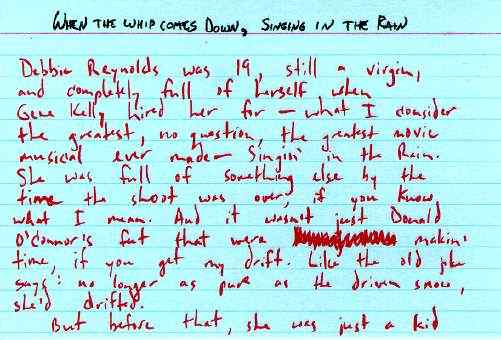 WHEN THE WHIP COMES DOWN, SINGING IN THE RAIN
Debbie Reynolds was 19, still a virgin,
and completely full of herself when
Gene Kelly hired her for — what I consider
the greatest, no question, the greatest movie
musical ever made — Singin' in the Rain.
She was full of something else by the
time the shoot was over, if you know
what I mean. And it wasn't just Donald
O'Connor's feet that were makin'
time, if you get my drift. Like the old joke
says: no longer as pure as the driven snow,
she'd drifted.
But before that, she was just a kid